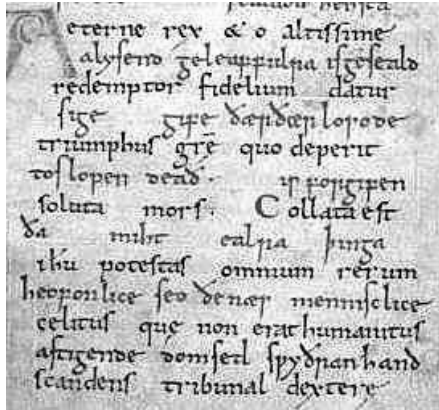 Aeterne rex & o altissime
alysend geleaffulra is geseald
redemptor fidelium datur
sige gife ðær ðær losode
triumphus grē quo deperit
toslopen dead. is forgifen
soluta mors. Collata est
ða miht ealra þinga
ihū potestas omnium rerum
heofonlice seo ðe næs mennisclice
celitus que non erat humanitus
astigende domsetl sƿyðran hand
scandens tribunal dextere